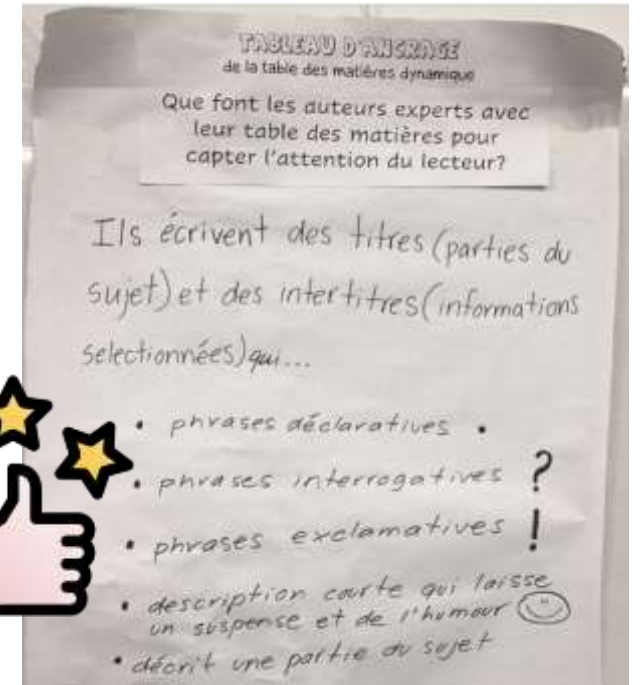 TABLEAU D'ANCRAGE
de la table des matières dynamique
Que font les auteurs experts avec
leur table des matières pour
capter l'attention du lecteur?
Ils écrivent des titres (parties du
sujet) et des intertitres (informations
selectionnées) qui...
• phrases déclaratives .
• phrases interrogatives ?
• phrases exclamatives !
• description courte qui laisse
un suspense et de l'humour
• décrit une partie du sujet